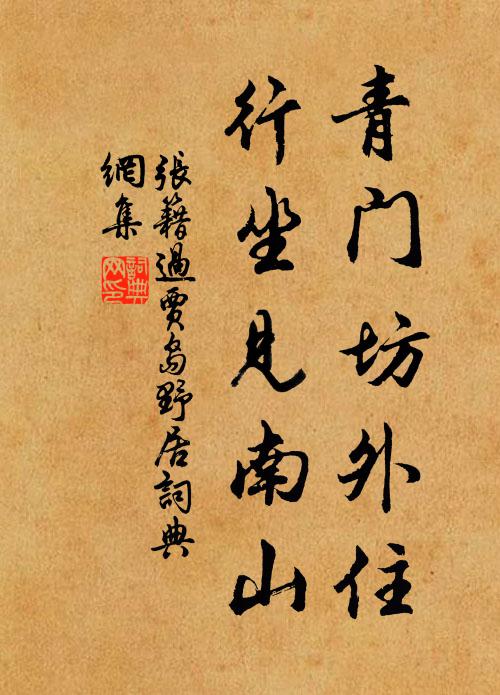 青门坊外住
行坐見南山
張籍過賈島野居詞典
網集
詞典
网印